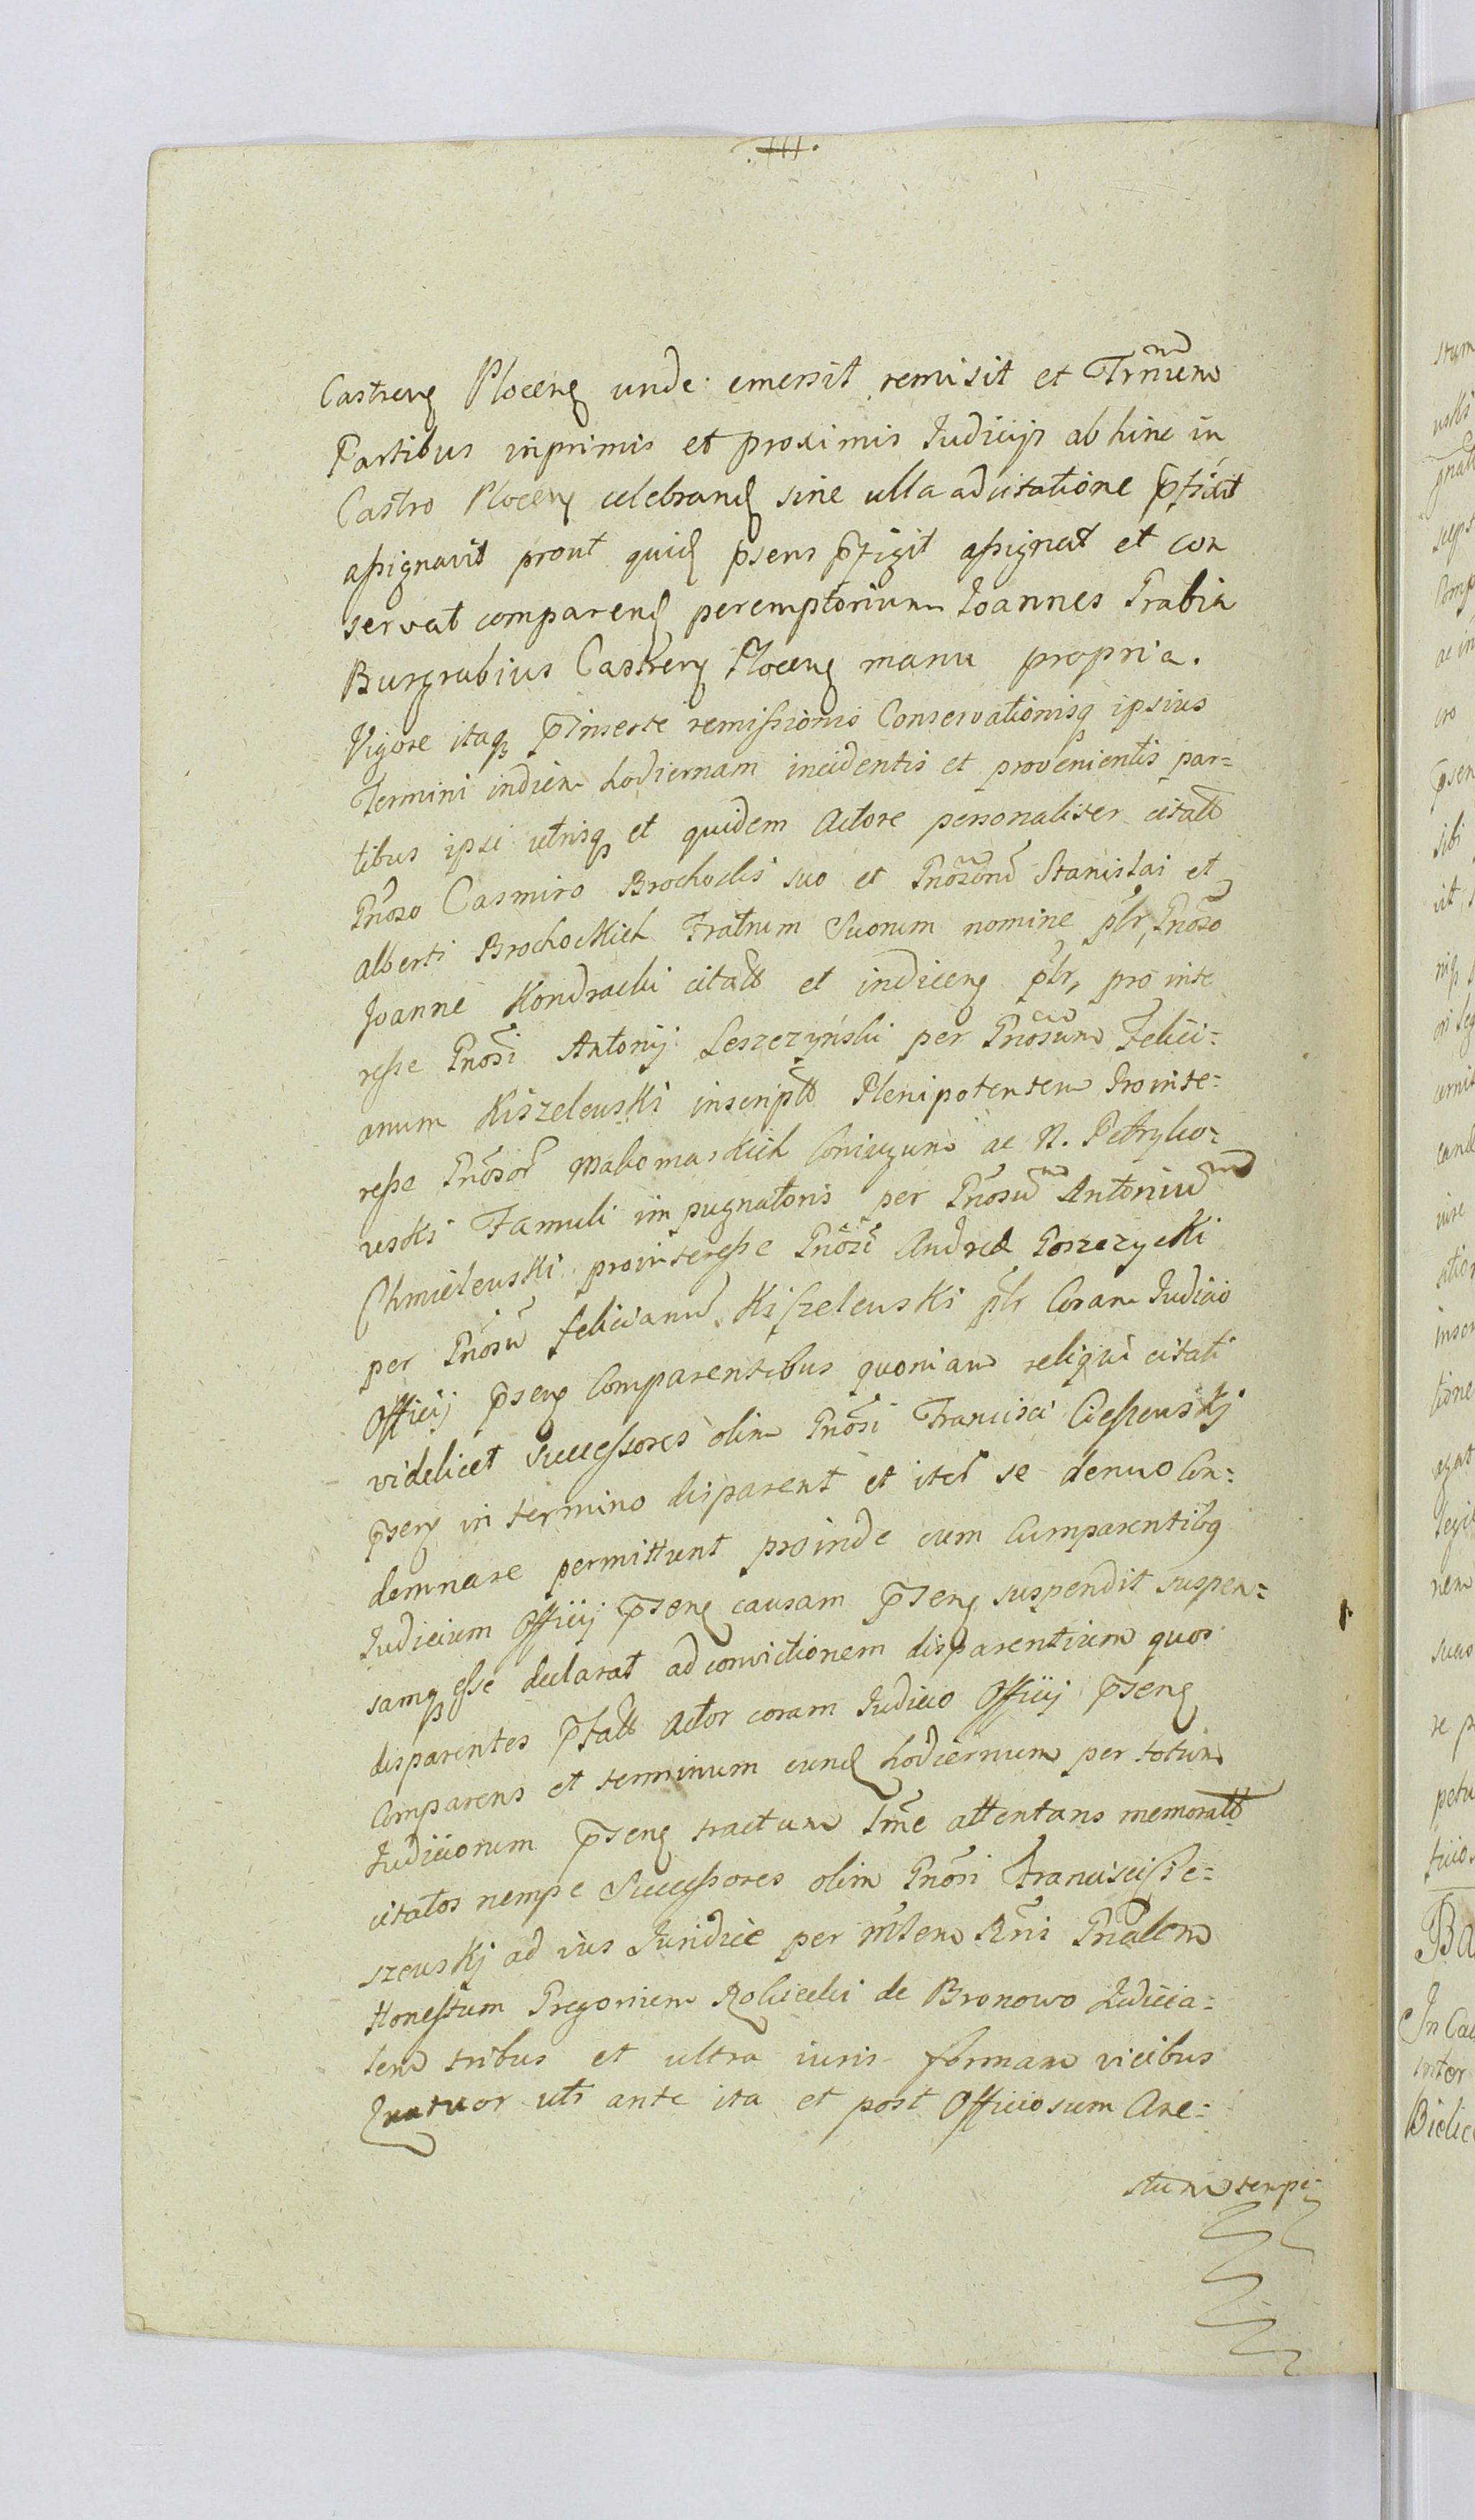 Castren Plocen unde emersit remisit et Trñum
Partibus inprimis et proximis Judicijs abhinc in
Castro Plocen celebrand sine ulla adcitatione p̄fixit
assignavit prout quid psens p̄figit assignat et con
servat comparend peremptorium Joannes Grabia
Burgrabius Castren Plocen manu propria.
Vigore itaq p̄inserte remissionis Conservationisq ipsius
Termini indiem hodiernam incidentis et provenientis par=
tibus ipsi utrisq et quidem Actore personaliter citatt
Gnoso Casmiro Brochocki suo et Gnosorum Stanislai et
Alberti Brochockich Fratrum Suorum nomine plr, Gnoso
Joanne Kondracki citatt et indicen plr, pro inte
resse Gnosi Antonij Leszczyński per Gnosum Felici=
anum Kiszelewski inscriptt Plenipotentem Prointe=
resse Gnosor Makomaskich Coniugum ac N. Petryko=
wski Famuli impugnatoris per Gnosum Antonium
Chmielewski prointeresse Gnosi Andreæ Goszczycki
per Gnosū felicianū Kiszelewski plr Coram Judicio
Officij p̄sen Comparentibus quoniam reliqui citati
videlicet Successores olim Gnosi Francisci Cieszewskj
p̄sen in termino disparent et iter se denuo Con=
demnare permittunt proinde cum Cumparentibq
Judicium Officij p̄sen causam p̄sen suspendit suspen=
samq esse declarat ad convictionem disparentium quos
disparentes p̄fatt Actor coram Judicio Officij p̄sen
Comparens et terminum eund hodiernum per totum
Judiciorum p̄sen tractum lme attentans memoratt
citatos nempe Successores olim Gnosi Francisci Cie=
szewskj ad ius Juridice per Mtem Rñi Gnalem
Honestum Gregorium Rokicki de Bronowo Judicia=
lem tribus et ultra iuris formam vicibus
Quatuor uti ante ita et post Officiosum Are=
stum